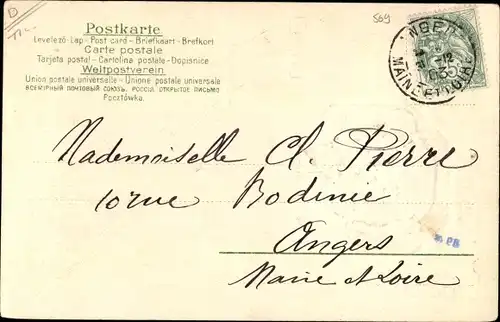 D
569
Postkarte
Levelező-Lap - Post card - Briefkaart - Brefkort
Carte postale
Tarjeta postal - Cartolina postale - Dopisnice
Weltpostverein
Union postale universelle - Unione postale universale
ВСЕМІРНЫЙ ПОЧТОВЫЙ СОЮЗЪ. РОССІЯ. ОТКРЫТОЕ ПИСЬМО
Pocztówka.
MAINE ET LOIRE
Mademoiselle Cl. Pierre
10 rue Bodinie
Angers
Maine et Loire
PB